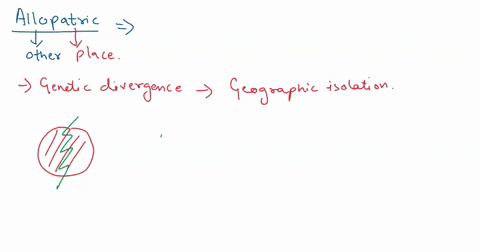 Allopatric ⇒
other place.
→ Genetic divergence → Geographic isolation.